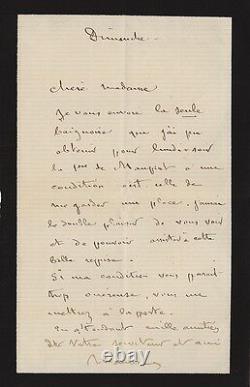 Dimanche
chère madame
Je vous envoie la seule
baignoire que j'ai pu
obtenir pour
la  de  a une
condition  celle de
me garder une place. J'aurai
le double plaisir de vous voir
et de pouvoir  à cette
belle reprise.
Si ma condition vous parait
trop onéreuse, vous me
mettrez à la porte.
En attendant mille amitiés
de votre serviteur et ami